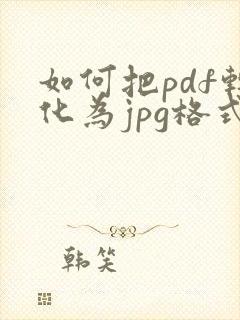 如何把pdf轉
化為jpg格式
韩笑